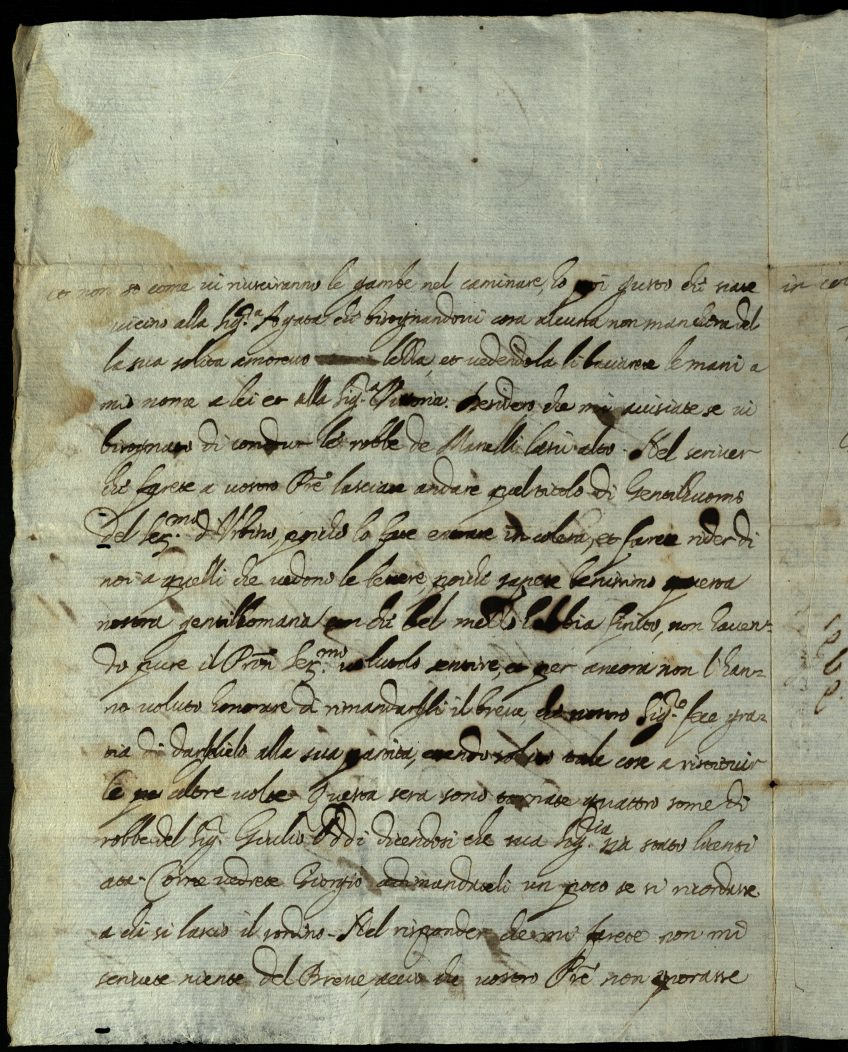 et non so come vi riusciranno le gambe nel caminare, ho poi gusto che siate
vicino alla Sig.ª Agata, che bisognandovi cosa alcuna non mancherà del
la sua solita amorevo lezza, et vedendola li baciarete le mani a
mio nome a lei et alla Sig.ª Vittoria. Desidero che mi avisiate se vi
bisognato di condur le robbe de Maralli lassù alto. Nel scriver
che farete a vostro Pre lasciate andare quel titolo di Gentilhuomo
del Ser.mo d'Urbino, perché lo fate entrare in colera, et farete rider di
noi a quelli che vedono le lettere, poiché sapete benissimo questa
nostra gentilhomaria con che bel modo habbia finito, non haven-
do pure il Prōn Ser.mo voluto sentire, et per ancora non l'han-
no voluto honorare di rimandargli il breve, che nostro Sig.e fece gra-
tia di darglielo alla sua partita, essendo solito tale cose a restituir
le per altre volte. Questa sera sono tornate quattro some di
robbe del Sig. Giulio Oddi dicendosi che sua Sig.ria sia stato licenti
ato. Come vedrete Giorgio adimandateli un poco se si ricordasse
a chi si lasciò il sordino. Nel risponder che mi farete non mi
scrivete niente del Breve, acciò che vostro Pre non